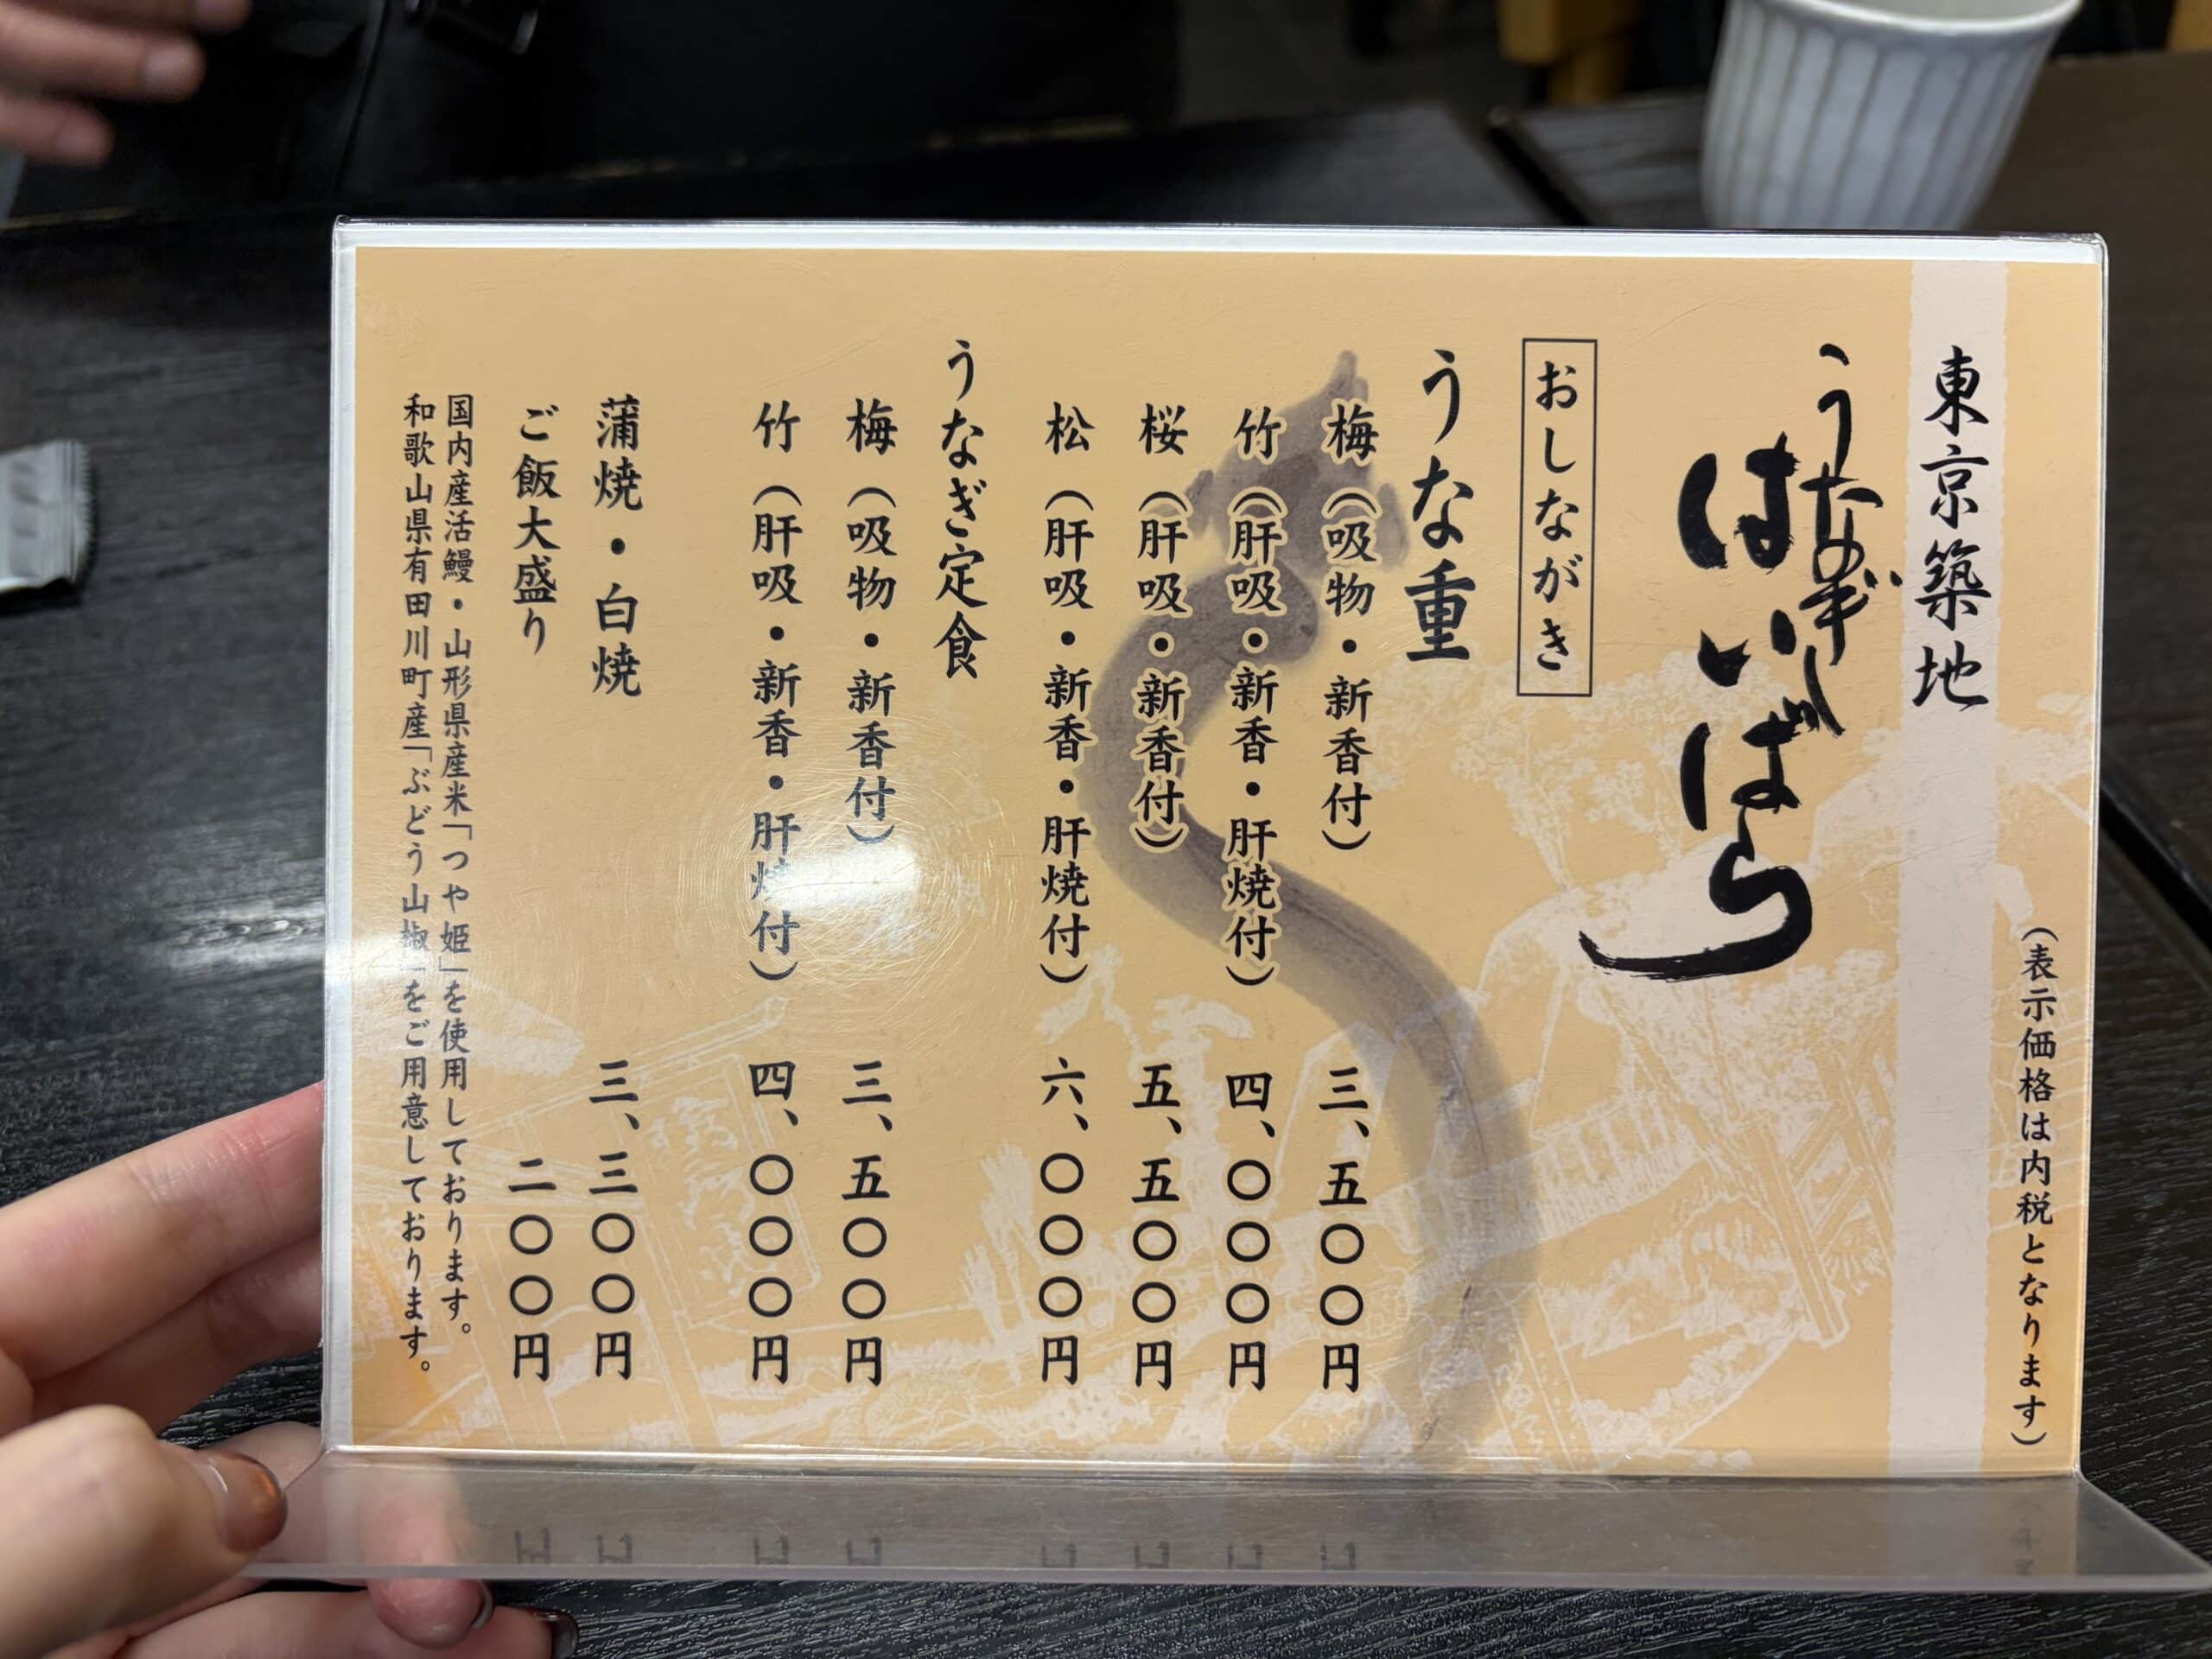 （表示価格は内税となります）
東京築地
うなぎ
はいばら
おしながき
うな重
梅（吸物・新香付）　三、五〇〇円
竹（肝吸・新香・肝焼付）　四、〇〇〇円
桜（肝吸・新香付）　五、五〇〇円
松（肝吸・新香・肝焼付）　六、〇〇〇円
うなぎ定食
梅（吸物・新香付）　三、五〇〇円
竹（肝吸・新香・肝焼付）　四、〇〇〇円
蒲焼・白焼　三、三〇〇円
ご飯大盛り　二〇〇円
国内産活鰻・山形県産米「つや姫」を使用しております。
和歌山県有田川町産「ぶどう山椒」をご用意しております。